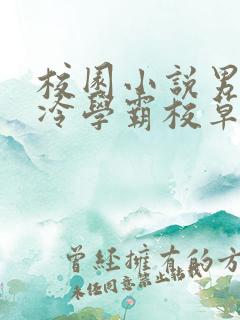 校園小說男
冷學霸校草
曾經擁有的方
未任同意禁止転載